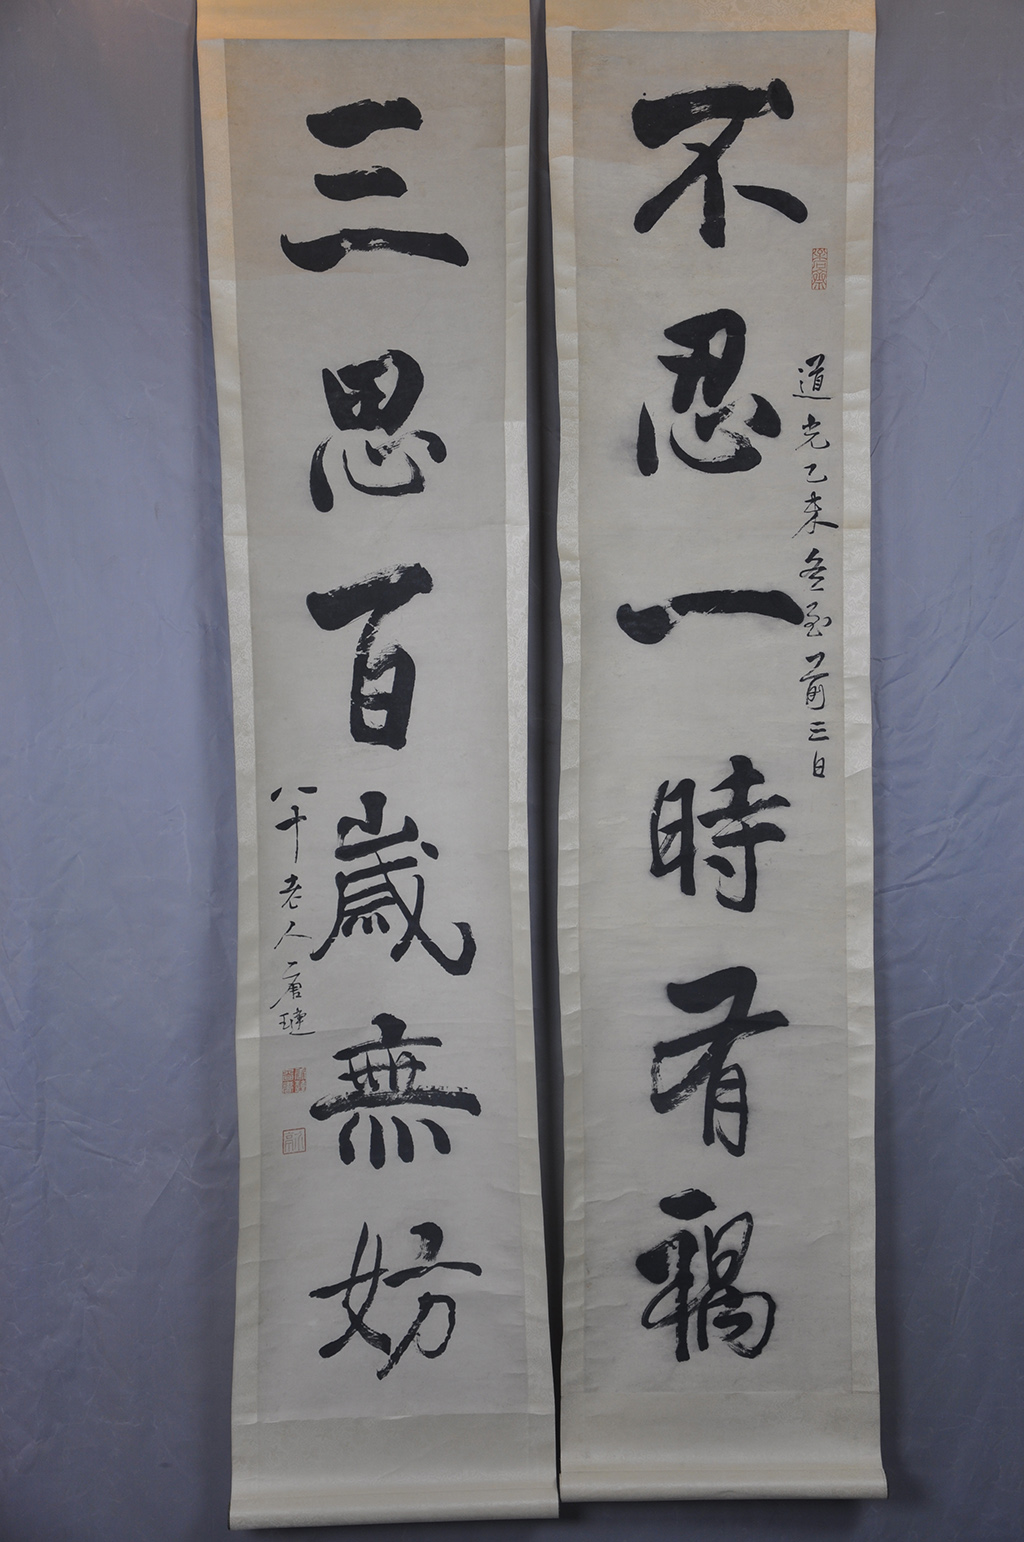 不忍一時有禍
道光乙未冬至前三日
三思百歲無妨
八十老人唐璉